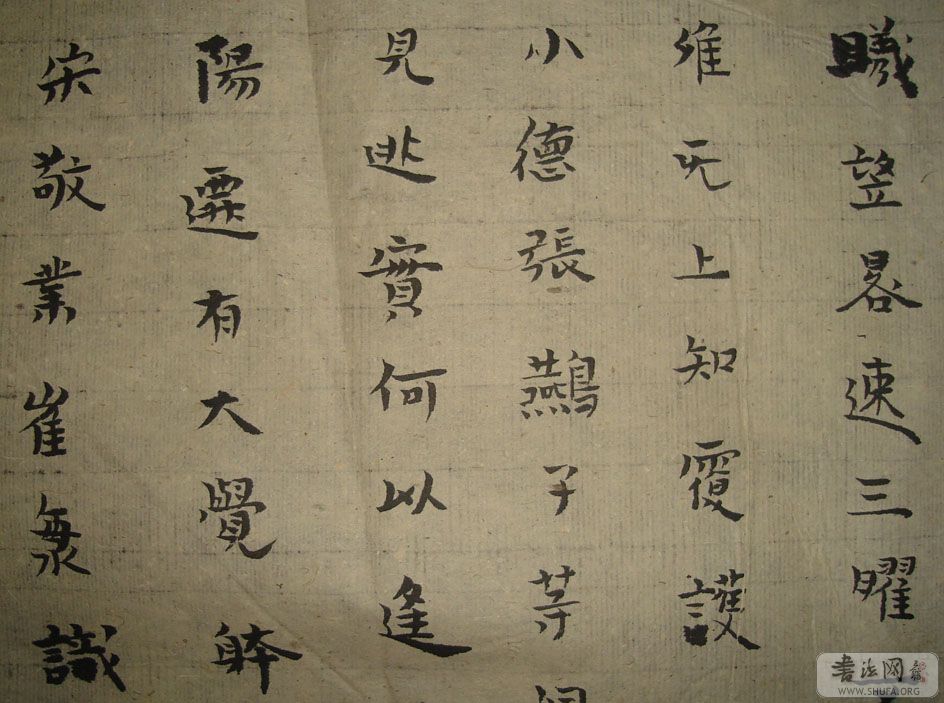 曦望晷速三曜
无上知覆護
小德張鷰子等
見逃實何以逢
陽遷有大覺躰
宋敬業崔衆識
書法网
WWW.SHUFA.ORG